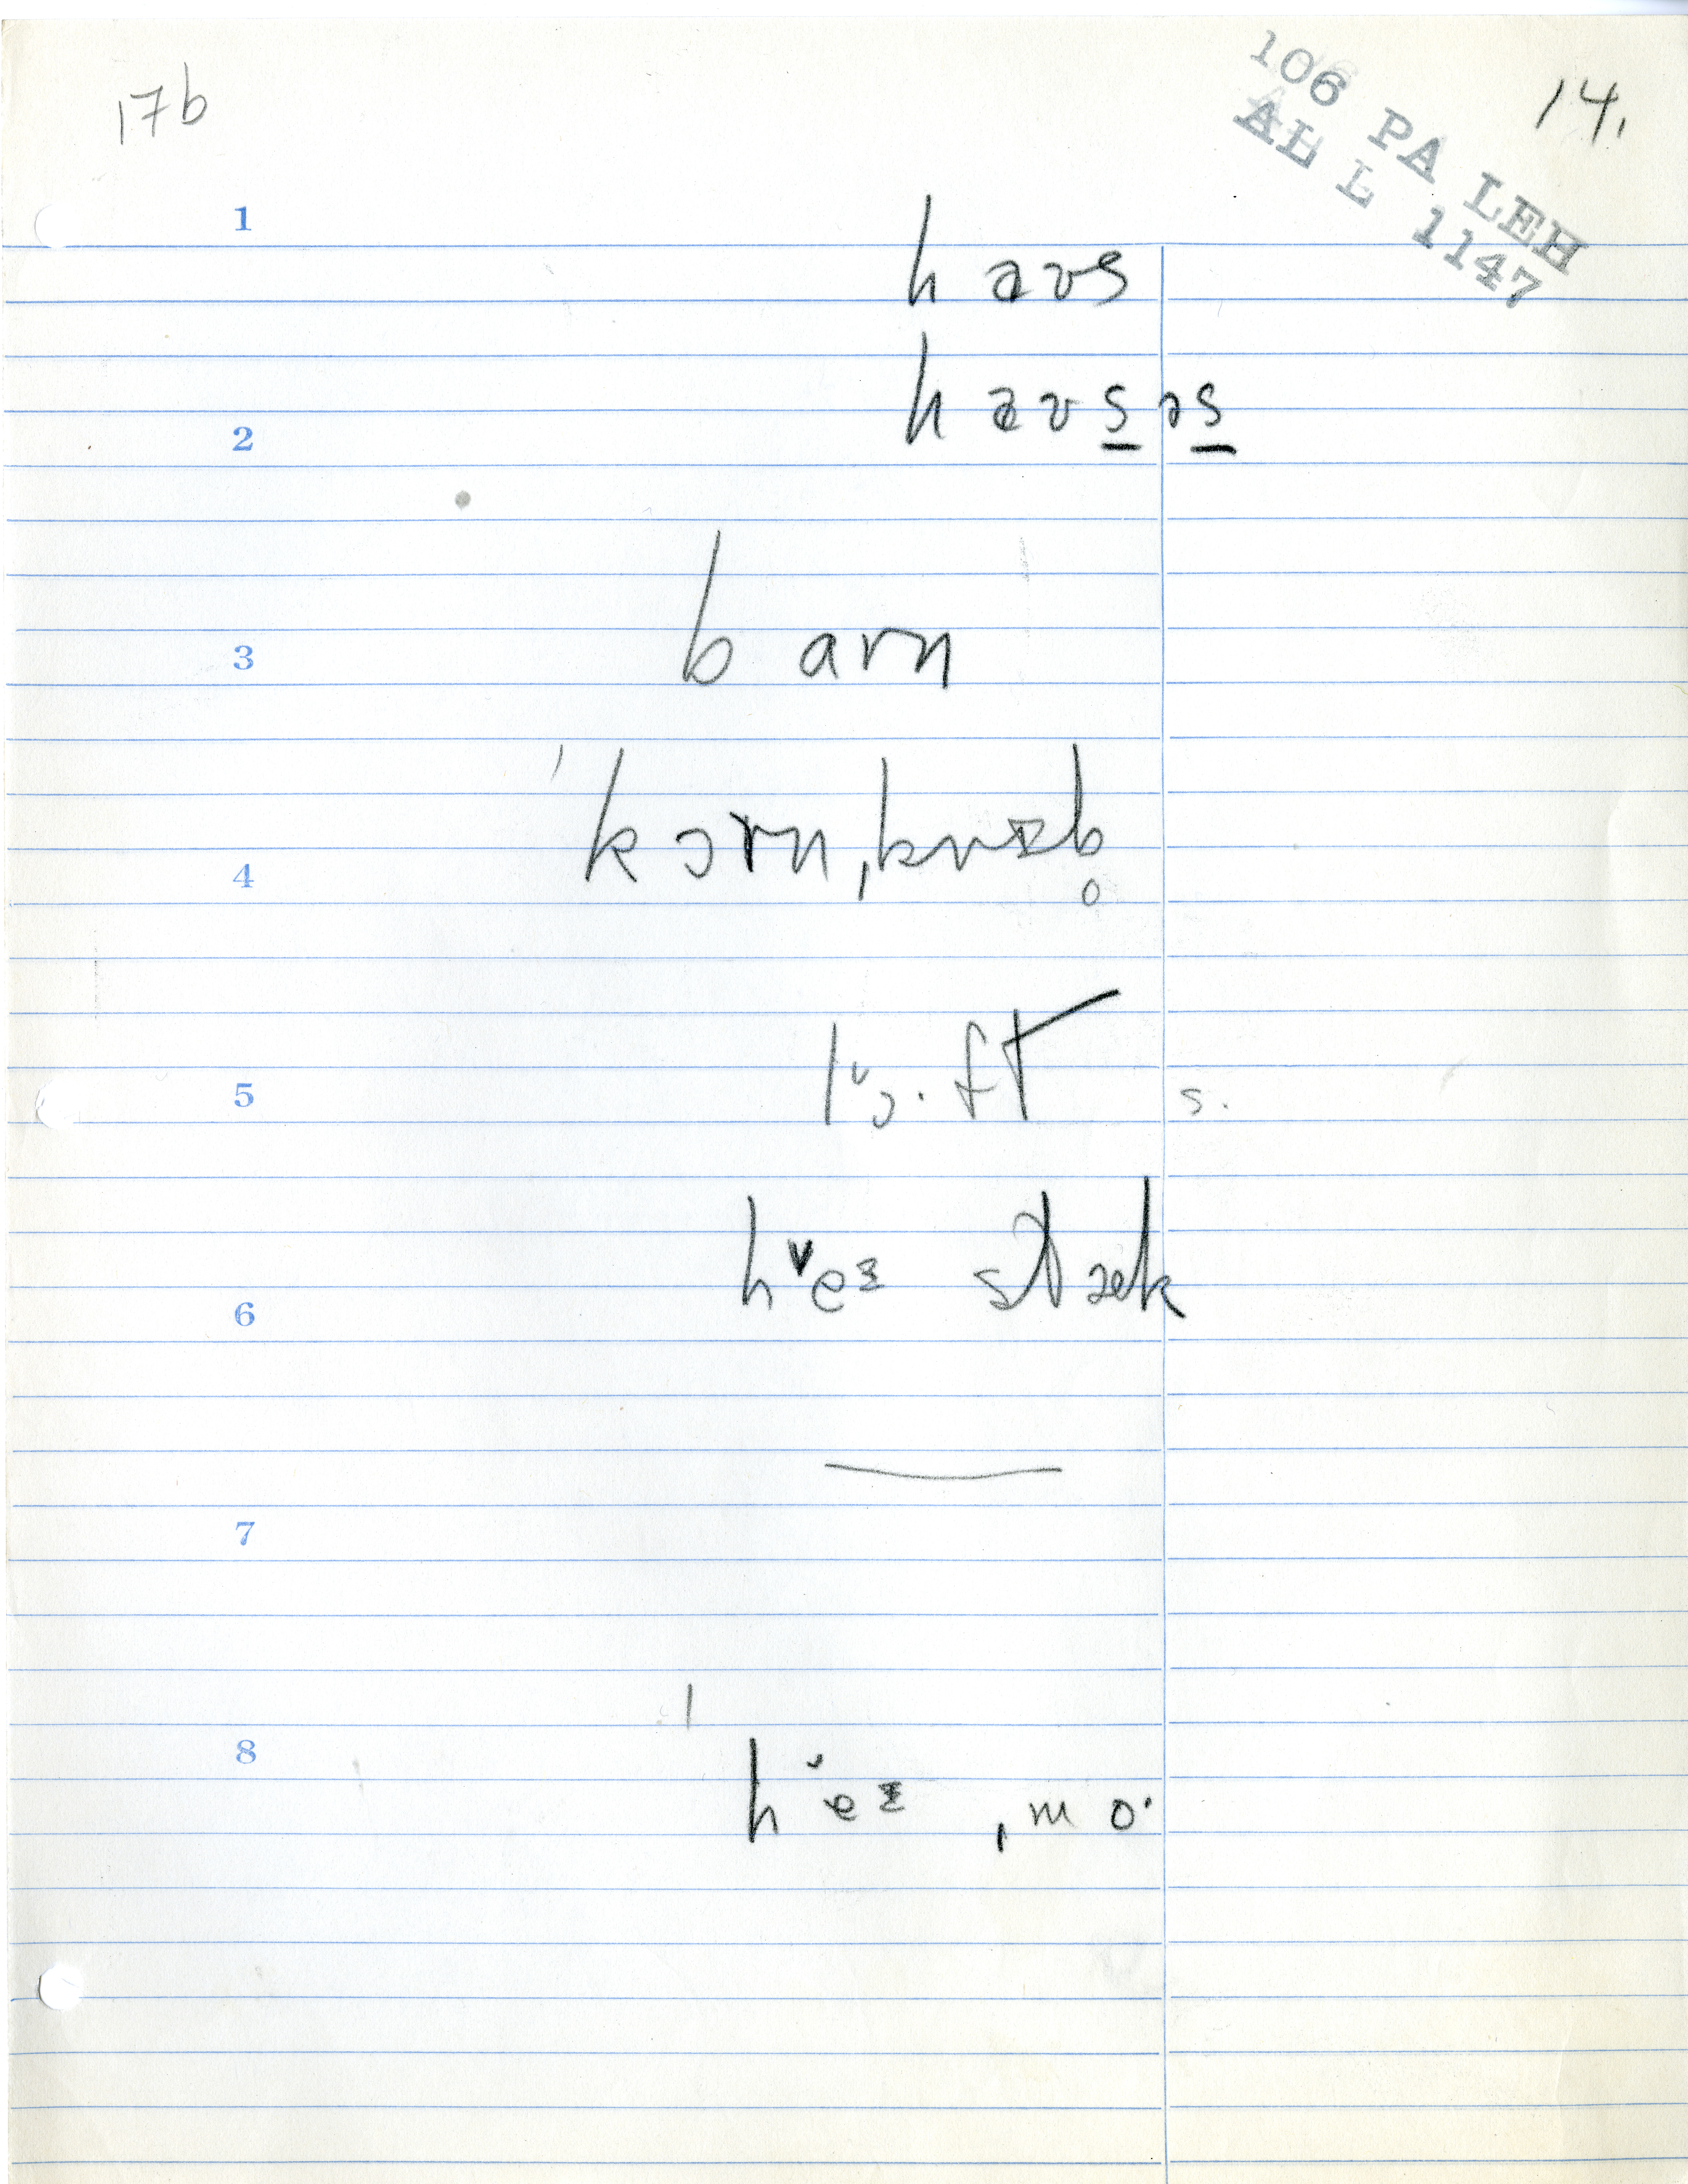 17b
14.
106 PA LEH
AL L 1147
1
haʊs
haʊs̲əs̲
2
3
barn
4
ˈkɔrn
5
lɔ˅·ft s.
6
he˅ stæk
7
8
he˅ ˌmo·